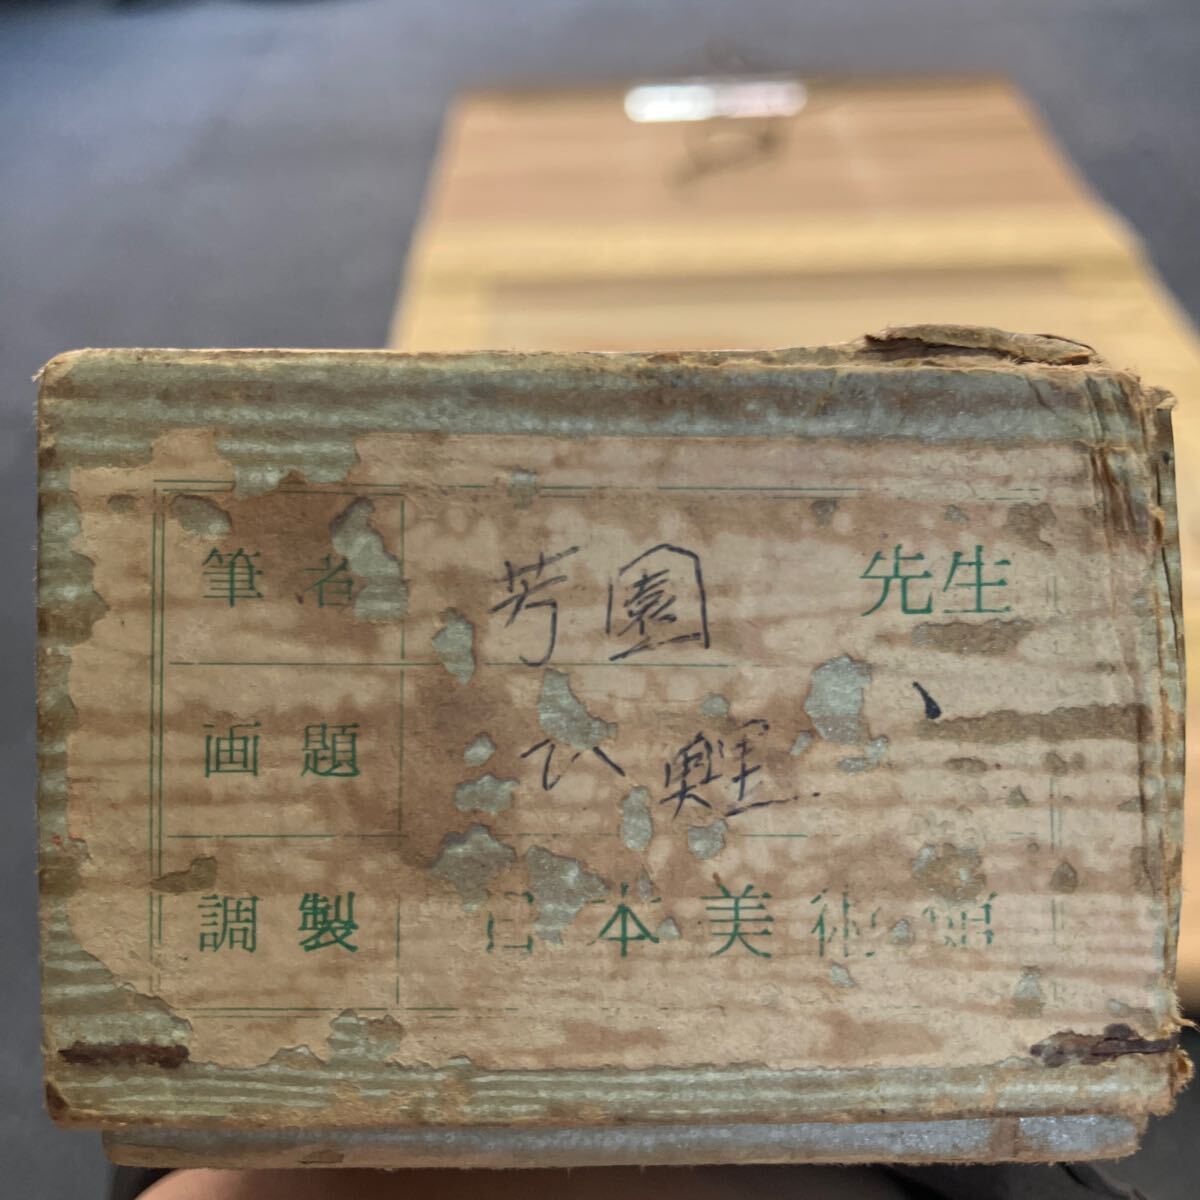 筆者 芳園 先生
画題 ひ鯉
調製 日本美術館